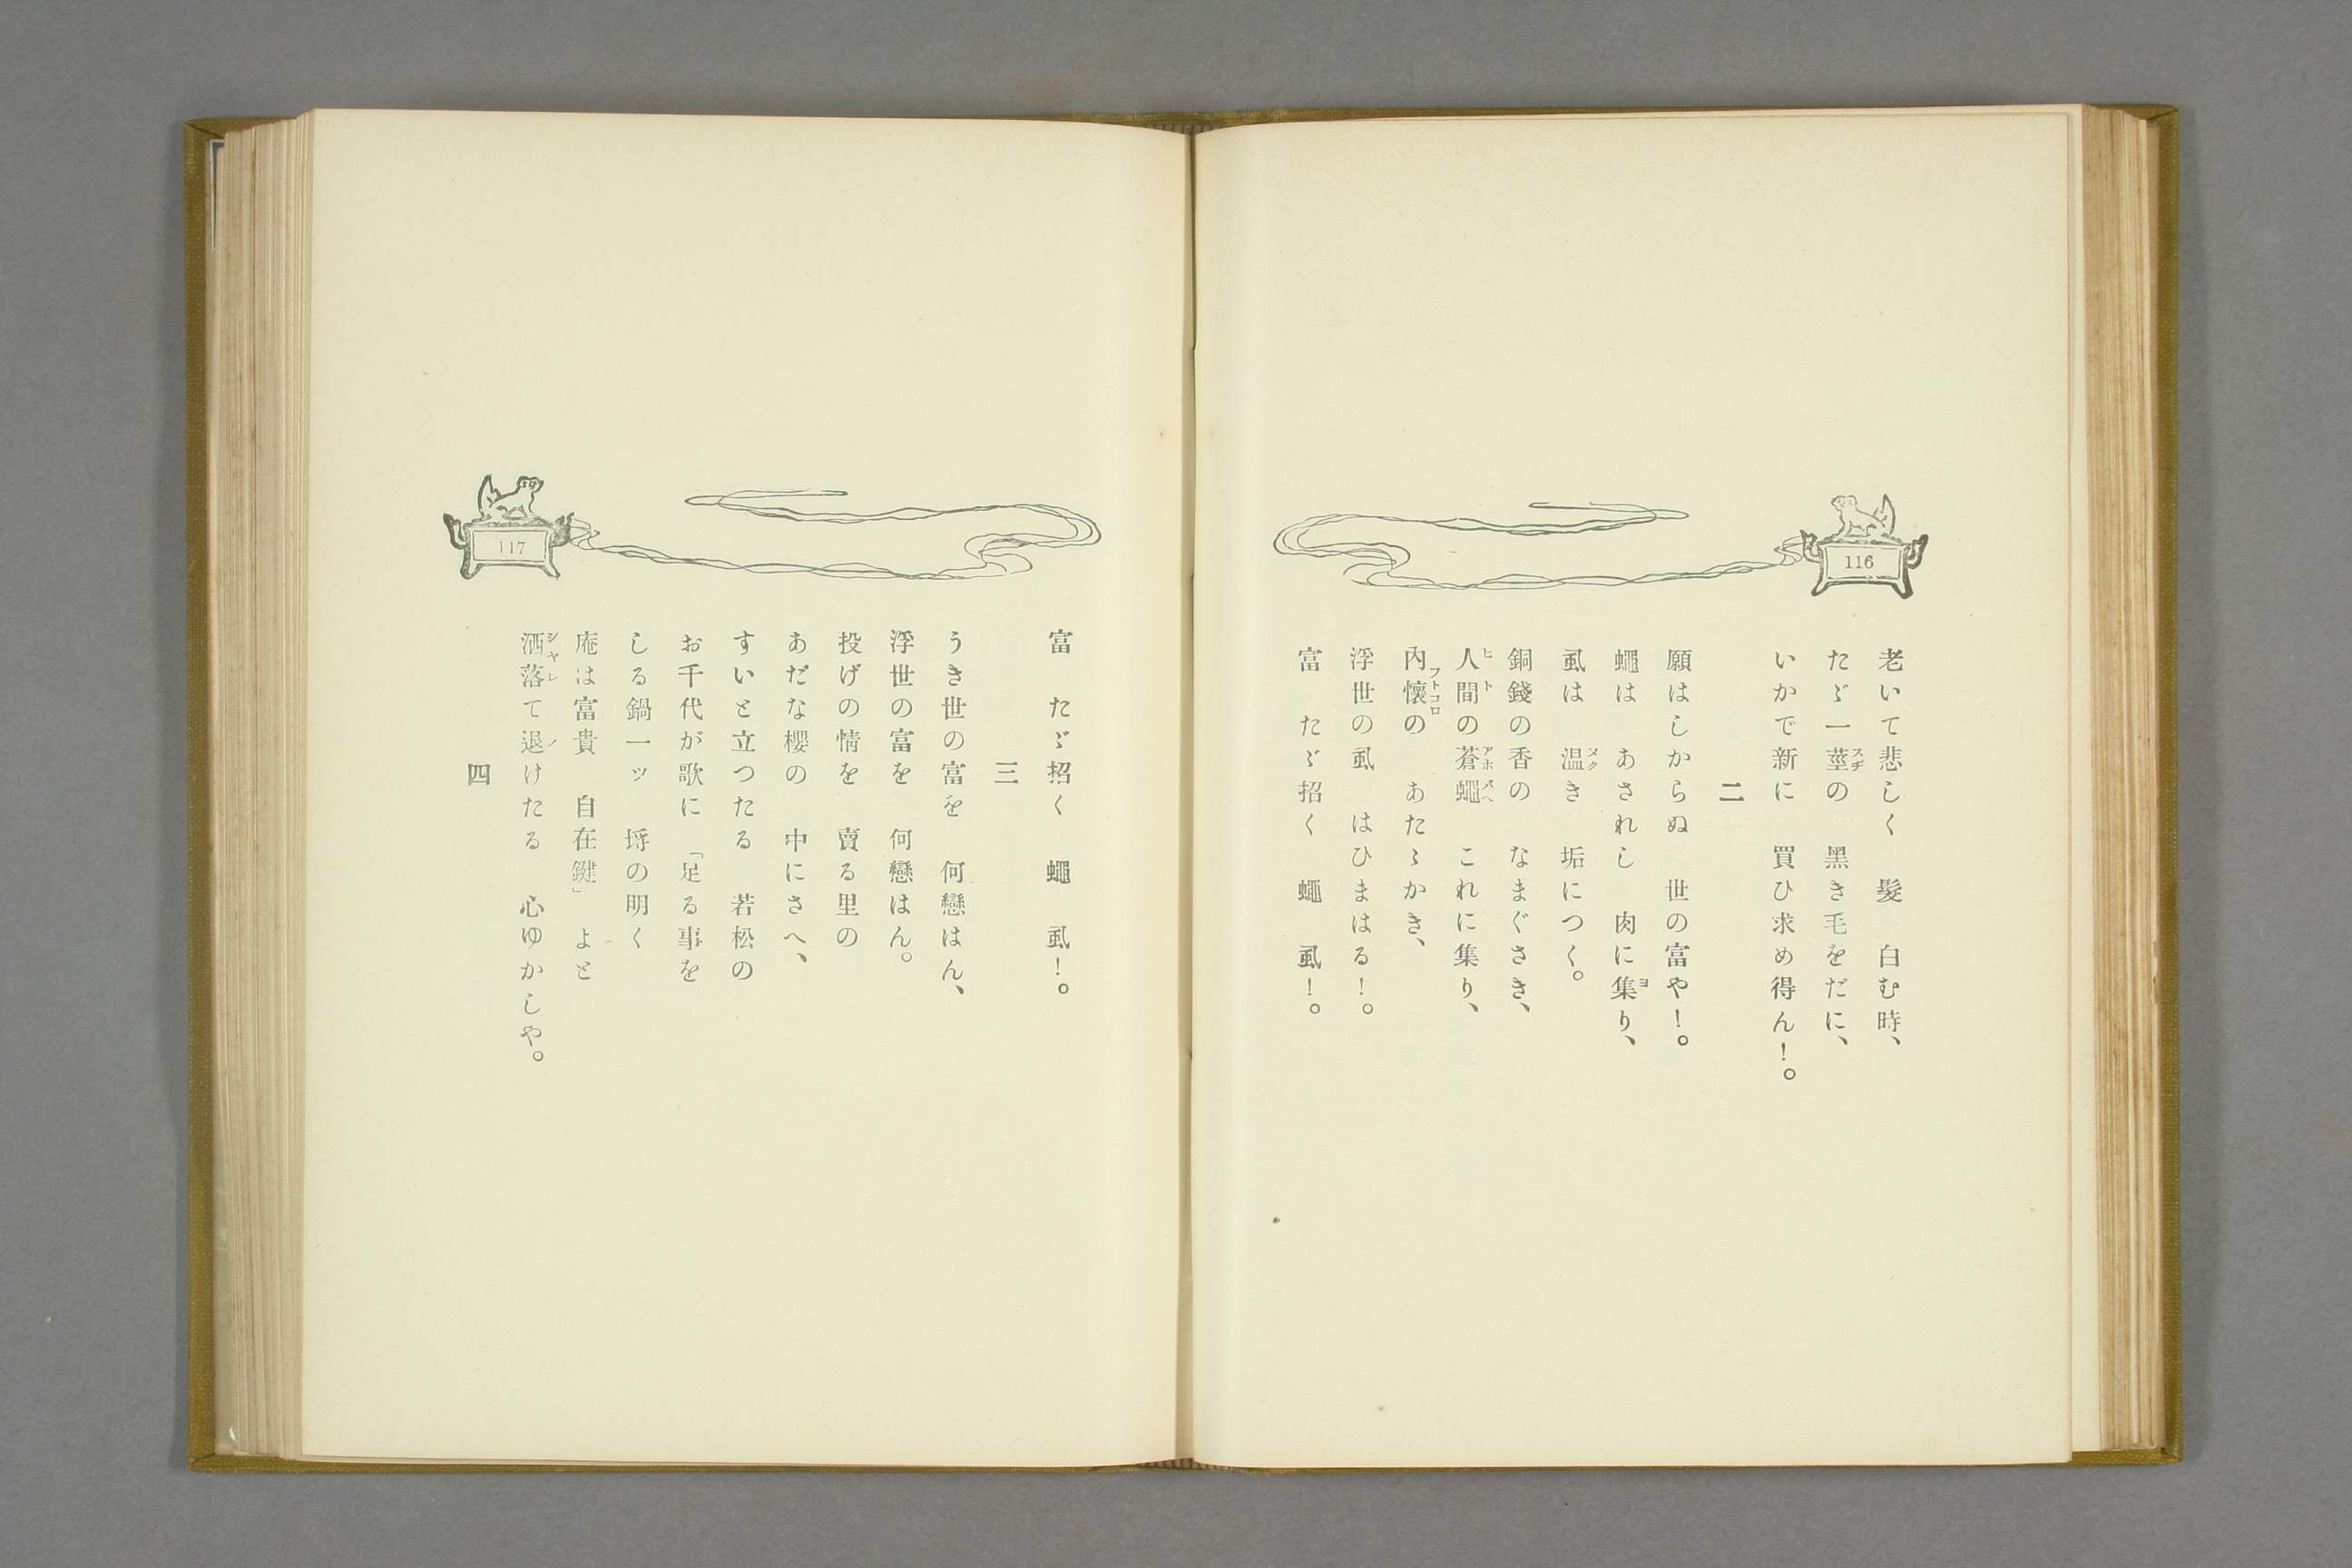 116
老いて悲しく　髮　白む時、
たゞ一莖の　黑き毛をだに、
いかで新に　買ひ求め得ん！。
二
願はしからぬ　世の富や！。
蠅は　あされし　肉に集り、
虱は　温き　垢につく。
銅錢の香の　なまぐさき、
人間の蒼蠅　これに集り、
內懷の　あたゝかき、
浮世の虱　はひまはる！。
富　たゞ招く　蠅　虱！。
117
富　たゞ招く　蠅　虱！。
三
うき世の富を　何戀はん、
浮世の富を　何戀はん。
投げの情を　賣る里の
あだな櫻の　中にさへ、
すいと立つたる　若松の
お千代が歌に「足る事を
しる鍋一ッ　埓の明く
庵は富貴　自在鍵」よと
洒落て退けたる　心ゆかしや。
四